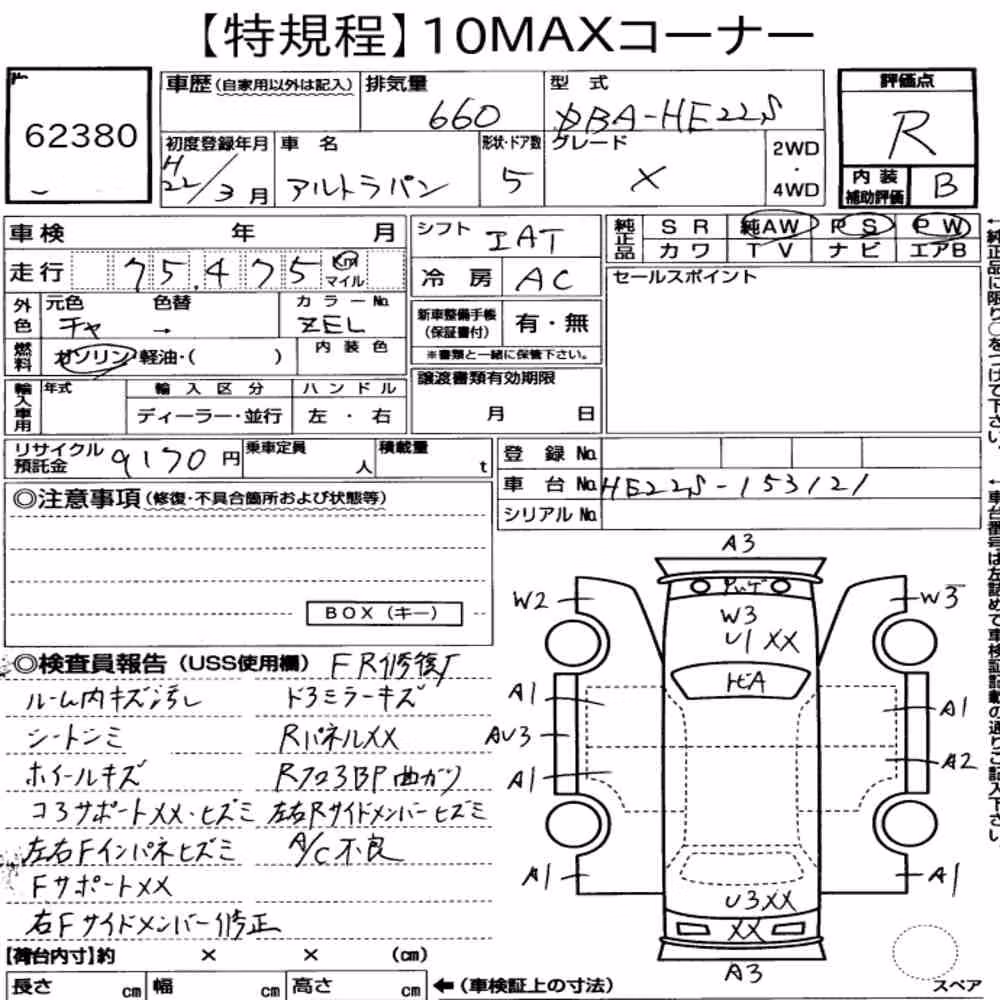 【特規程】10MAXコーナー
62380
車歴(自家用以外は記入)
排気量
660
型式
DBA-HE22S
評価点
R
初度登録年月
H22/3月
車名
アルトラパン
形状・ドア数
5
グレード
X
2WD
・
4WD
内装
補助評価
B
車検 年 月
走行 75,475 km
マイル
シフト
IAT
冷房
AC
純正品
SR 純AW PS PW
カワ TV ナビ エアB
セールスポイント
外色
元色 色替
チャ →
カラーNo.
ZEL
新車整備手帳
(保証書付)
有・無
※書類と一緒に保管下さい。
燃料
ガソリン・軽油・( )
内装色
譲渡書類有効期限
月 日
輸入車用
年式
輸入区分
ディーラー・並行
ハンドル
左・右
リサイクル
預託金
9170円
乗車定員
人
積載量
t
登録No.
車台No.
HE22S-153121
シリアルNo.
←純正品に限り〇をつけて下さい。
←車台番号は左詰めで車検証記載の通りご記入下さい。
◎注意事項(修復・不具合箇所および状態等)
BOX(キー)
◎検査員報告(USS使用欄) FR修復有
ルーム内キズ汚レ ドヨミラーキズ
シートシミ RパネルXX
ホイールキズ Rフロ3BP曲ガリ
コ3サポートXX・ヒズミ 左右Rサイドメンバーヒズミ
左右Fインパネヒズミ A/C不良
FサポートXX
右Fサイドメンバー修正
A3
W2
W3
W3
U1 XX
A1
A1
AU3
A1
A2
A1
A1
U3XX
XX
A3
【荷台内寸】約 × × (cm)
長さ cm 幅 cm 高さ cm ←(車検証上の寸法)
スペア